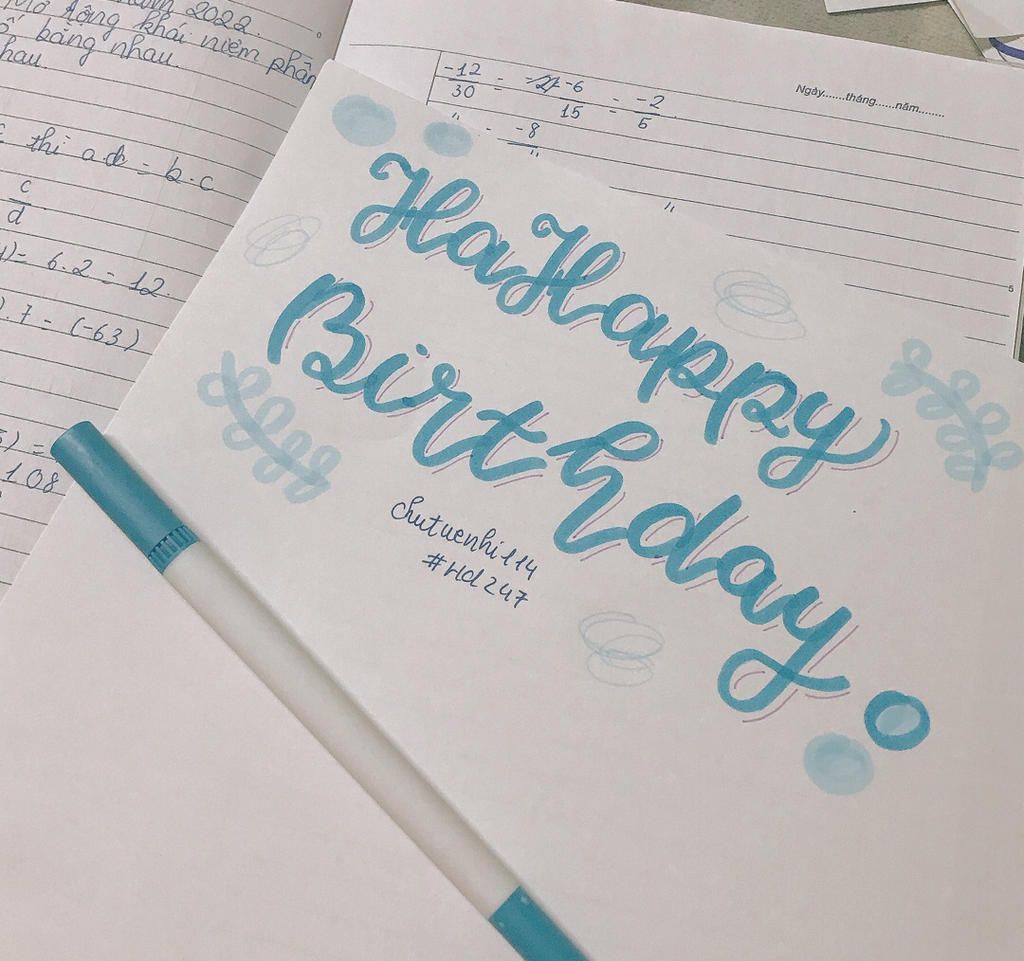 năm 2022.
Mở rộng khái niệm phân
bằng nhau
hau
thì ad = b.c
c
d
= 6.2 = 12.
.7 = (-63)
=
108
-12 = -6 = -2
30 15 5
" - -8
"
"
Ngày.......tháng......năm........
5
HaHappy
Birthday
chutuenhi114
#Hd247